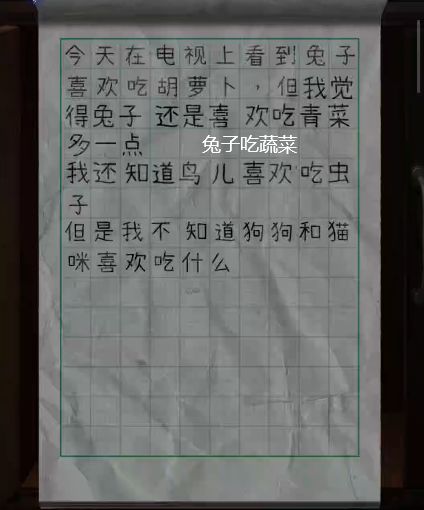 今天在电视上看到兔子
喜欢吃胡萝卜，但我觉
得兔子还是喜欢吃青菜
多一点
兔子吃蔬菜
我还知道鸟儿喜欢吃虫
子
但是我不知道狗狗和猫
咪喜欢吃什么